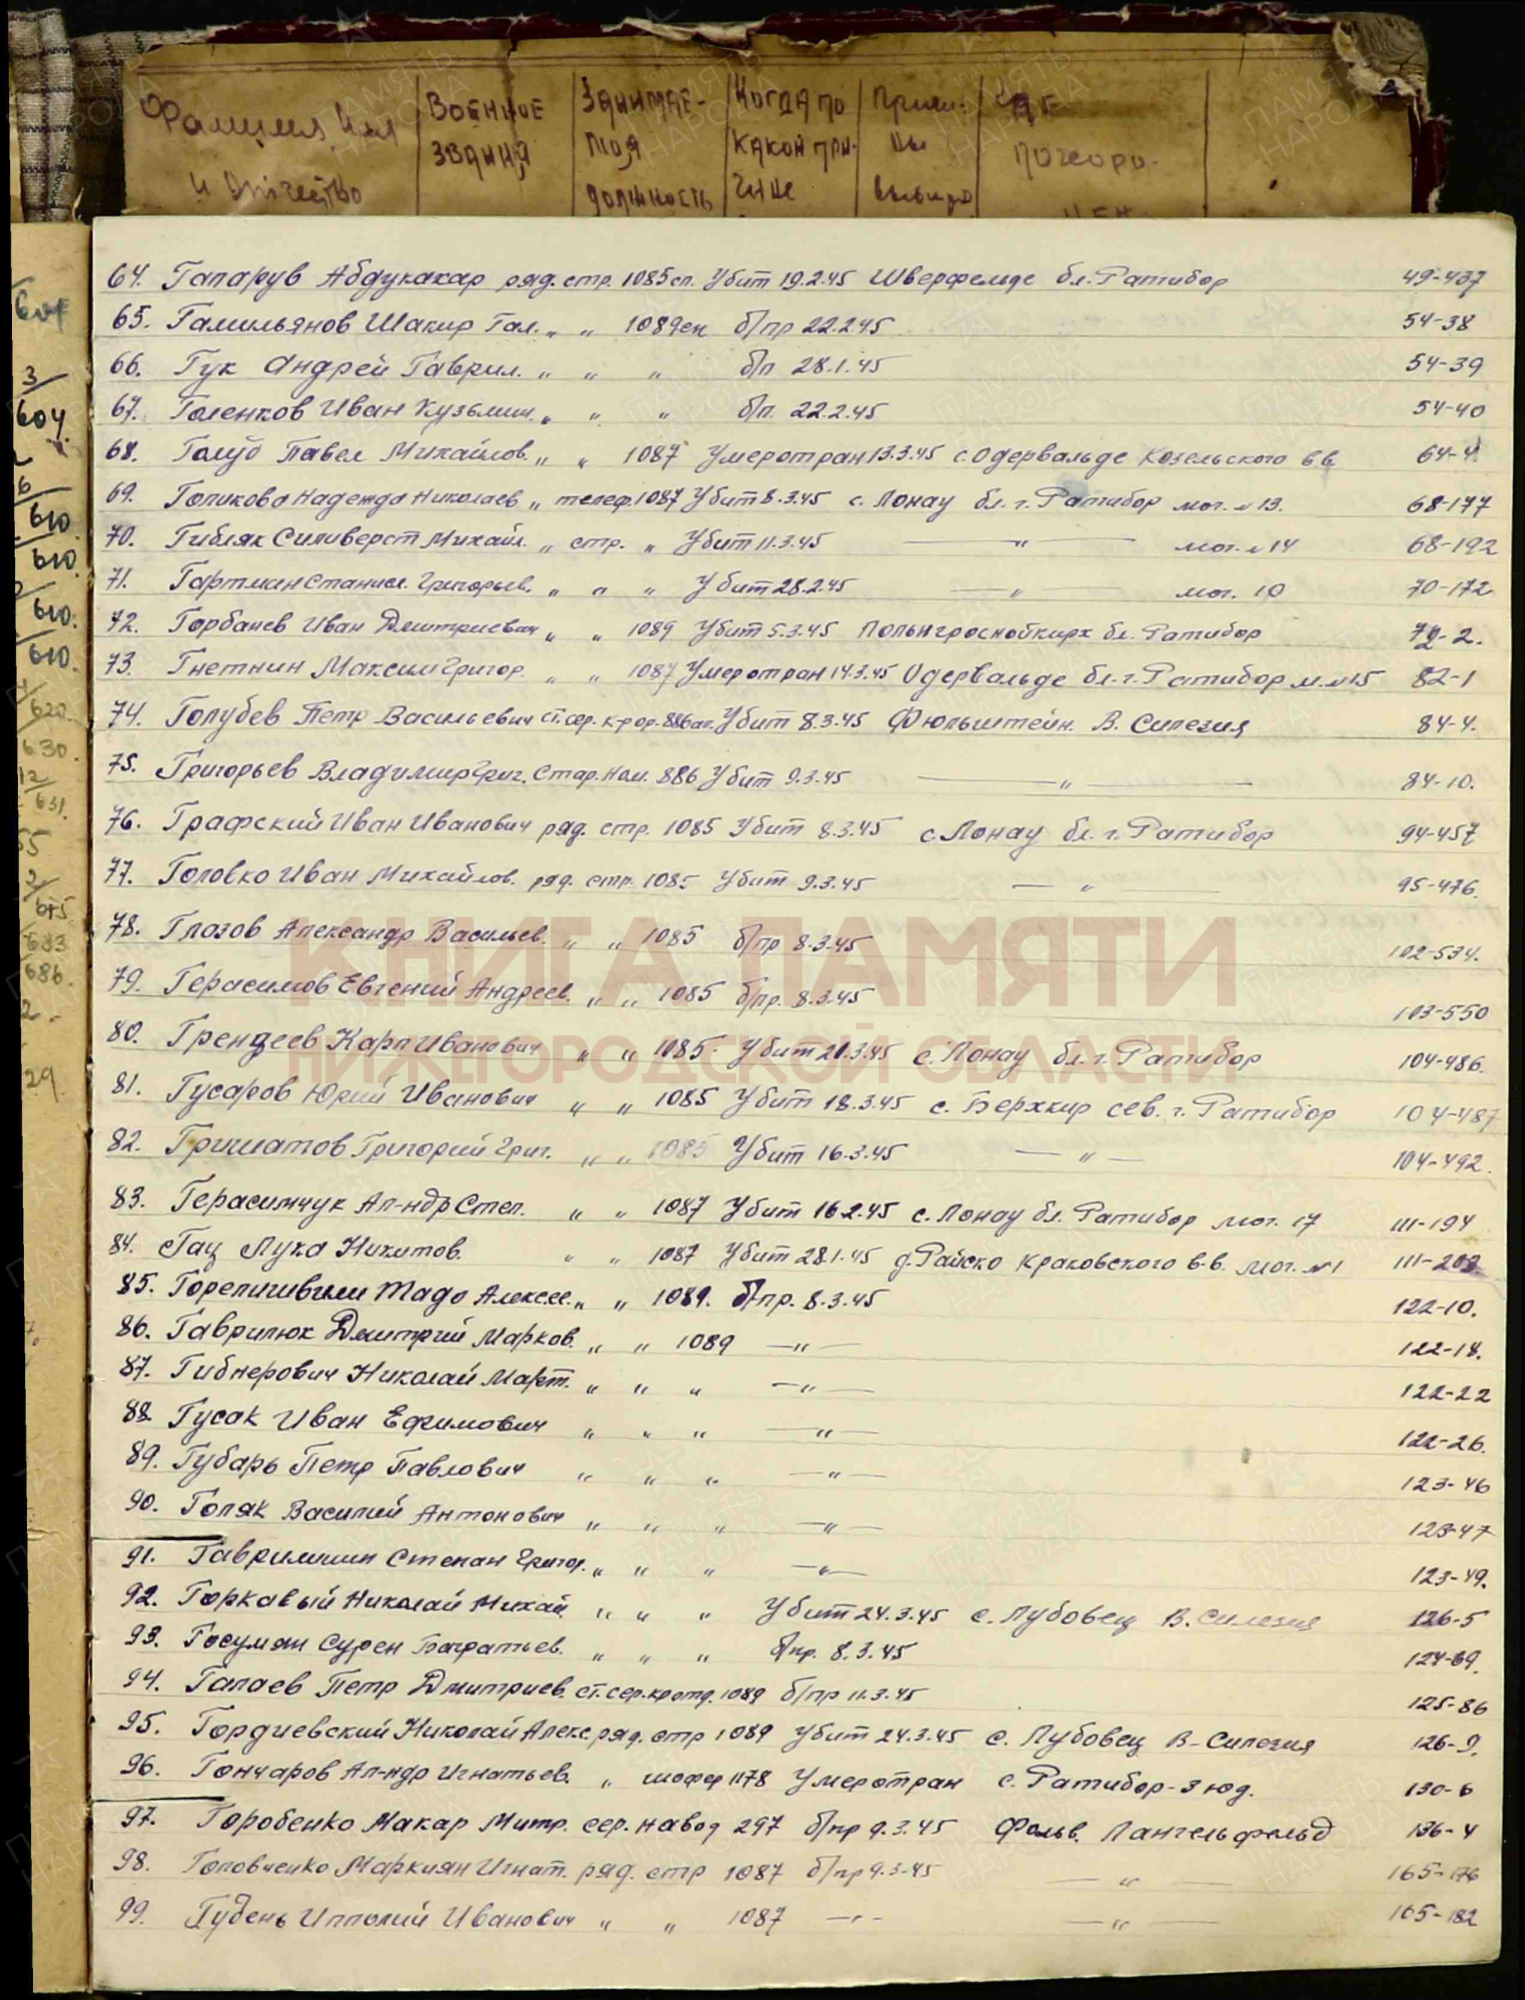 Фамилия, имя и отчество
Военное звания
Занимае-мая должность
Когда по какой при-чине
Причи-ны выбыт
Где похоро-нен
64. Гапарув Абдукахар ряд. стр. 1085 сп. Убит 19.2.45 Шверфельде бл. Ратибор 49-437
65. Гамильянов Шакир Гал. " " 1089 сп б/пр 22.2.45 54-38
66. Гук Андрей Гаврил. " " " б/п 28.1.45 54-39
67. Голенков Иван Кузьмич. " " " б/п. 22.2.45 54-40
68. Голуб Павел Михайлов. " " 1087 Умер от ран 13.3.45 с. Одервальде Козельского в.в. 64-4
69. Голикова Надежда Николаев " телеф. 1087 Убит 8.3.45 с. Лонау бл. г. Ратибор мог. № 13. 68-177
70. Гибляк Силиверст Михайл. " стр. " Убит 11.3.45 — " — мог. № 14 68-192
71. Гартман Станисл. Григорьев. " " " Убит 28.2.45 — " — мог. 10 70-172
72. Горбанев Иван Дмитриевич " " 1089 Убит 5.3.45 Польнгроснойкирх бл. Ратибор 72-2.
73. Гнетнин Максим Григор. " " 1087 Умер от ран 14.3.45 Одервальде бл. г. Ратибор м. №15 82-1
74. Голубев Петр Васильевич ст. сер. к-р ор. 886 ап. Убит 8.3.45 Фюльштейн. В. Силезия 84-4.
75. Григорьев Владимир Григ. Стар. Нав. 886 Убит 9.3.45 — " — 84-10.
76. Графский Иван Иванович ряд. стр. 1085 Убит 8.3.45 с. Лонау бл. г. Ратибор 94-457
77. Головко Иван Михайлов. ряд. стр. 1085 Убит 9.3.45 — " — 95-476.
78. Глозов Александр Васильев. " " 1085 б/пр 8.3.45 102-534.
79. Герасимов Евгений Андреев. " " 1085 б/пр. 8.3.45 103-550
80. Грендеев Карп Иванович " " 1085 Убит 21.3.45 с. Лонау бл. г. Ратибор 104-486.
81. Гусаров Юрий Иванович " " 1085 Убит 18.3.45 с. Берхкир сев. г. Ратибор 104-487
82. Гришатов Григорий Григ. " " 1085 Убит 16.3.45 — " — 104-492.
83. Герасимчук Ал-ндр Степ. " " 1087 Убит 16.2.45 с. Лонау бл. Ратибор мог. 17 111-194
84. Гац Лука Никитов. " " 1087 Убит 28.1.45 д. Райско Краковского в.в. мог. №1 111-203
85. Горелишвили Тадо Алексее. " " 1089. б/пр. 8.3.45 122-10.
86. Гаврилюк Дмитрий Марков. " " 1089 — " — 122-18.
87. Гибнерович Николай Март. " " " — " — 122-22
88. Гусак Иван Ефимович " " " — " — 122-26.
89. Губарь Петр Павлович " " " — " — 123-46
90. Голяк Василий Антонович " " " — " — 123-47
91. Гавримшин Степан Григор. " " " — " — 123-49.
92. Горкавый Николай Михай. " " " Убит 24.3.45 с. Лубовец В. Силезия 126-5
93. Госумян Сурен Багратьев. " " " б/пр. 8.3.45 124-69.
94. Галаев Петр Дмитриев. ст. сер. кр отд. 1089 б/пр 11.3.45 125-86
95. Гордиевский Николай Алекс. ряд. стр 1089 Убит 24.3.45 с. Лубовец В-Силезия 126-9.
96. Гончаров Ал-ндр Игнатьев. " шофер 1178 Умер от ран с. Ратибор-3 юд. 130-6
97. Горобенко Макар Митр. сер. навод 297 б/пр 9.3.45 Фольв. Лангельфольд 136-4
98. Головченко Маркиян Игнат. ряд. стр 1087 б/пр 9.3.45 — " — 165-176
99. Гудень Ипполий Иванович " " 1087 — " — — " — 165-182
КНИГА ПАМЯТИ
НИЖЕГОРОДСКОЙ ОБЛАСТИ